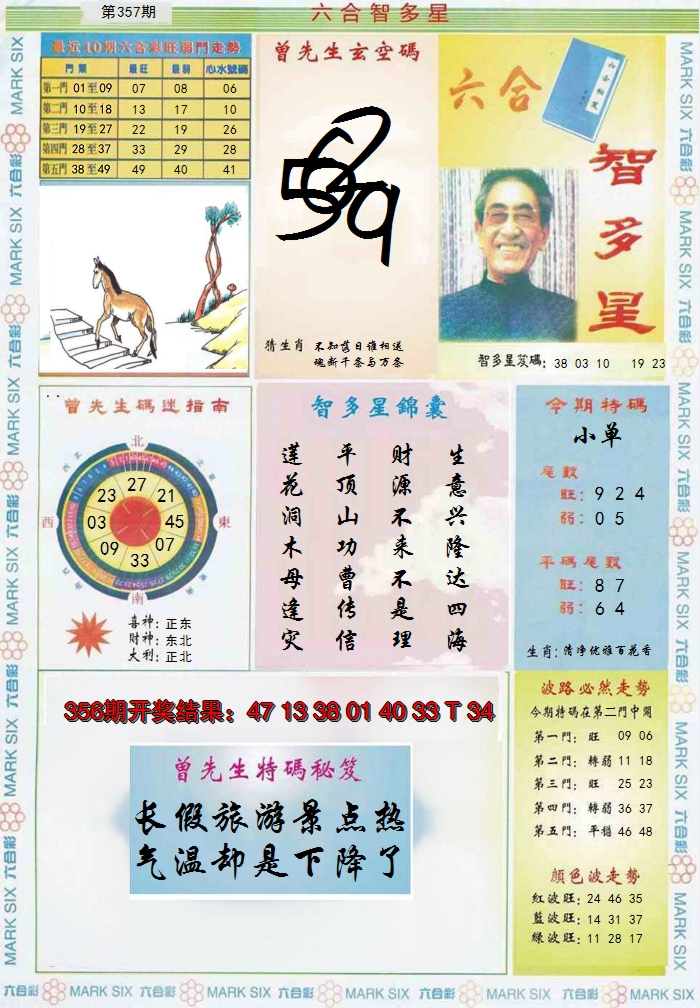 第357期
六合智多星
最近10期六合彩旺弱門走勢
門類 最旺 最弱 心水號碼
第一門 01至09 07 08 06
第二門 10至18 13 17 10
第三門 19至27 22 19 26
第四門 28至37 33 29 28
第五門 38至49 49 40 41
曾先生玄空碼
猜生肖 不知落日谁相送
魂断千条与万条
六合
六合秘笈
智多星
智多星笈碼: 38 03 10 19 23
曾先生碼迷指南
北
西北
東北
西
東
西南
東南
南
27
23 21
03 45
09 07
33
喜神: 正东
财神: 东北
大利: 正北
智多星錦囊
生意兴隆达四海
财源不来不是理
平顶山功曹传信
莲花洞木母逢灾
今期特碼
小单
尾數
旺: 9 2 4
弱: 0 5
平碼尾數
旺: 8 7
弱: 6 4
生肖: 清净优雅百花香
356期开奖结果: 47 13 38 01 40 33 T 34
曾先生特碼秘笈
长假旅游景点热
气温却是下降了
波路必然走勢
今期特碼在第二門中開
第一門: 旺 09 06
第二門: 轉弱 11 18
第三門: 旺 25 23
第四門: 轉弱 36 37
第五門: 平穩 46 48
顏色波走勢
紅波旺: 24 46 35
藍波旺: 14 31 37
绿波旺: 11 28 17
MARK SIX 六合彩